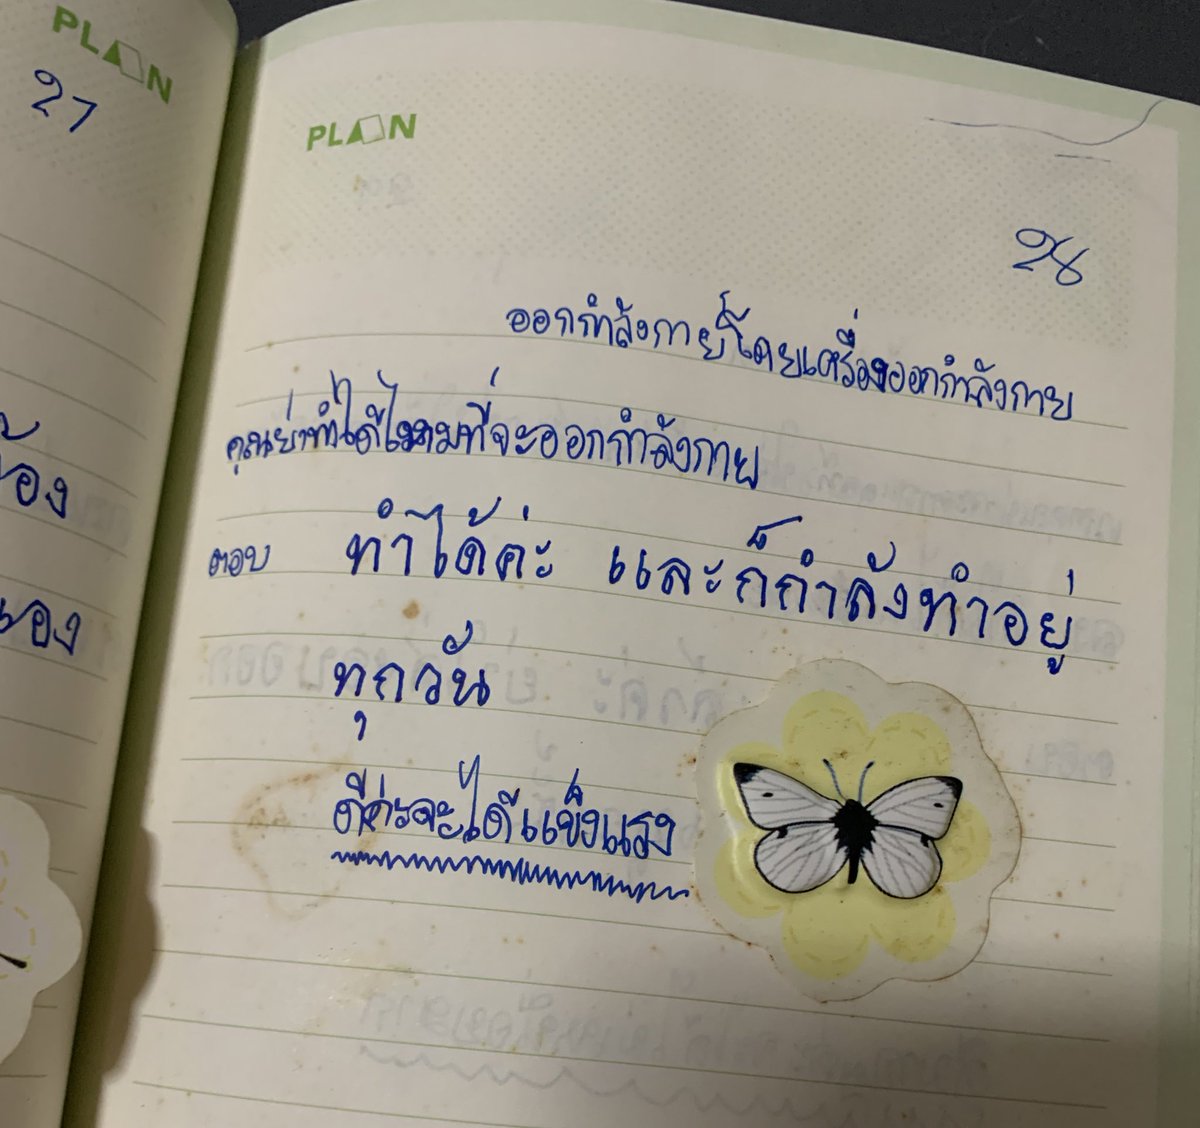 PLAN
27
้อง
เอง
PLAN
28
ออกกำลังกายโดยเครื่องออกกำลังกาย
คุณย่าทำได้ไหมที่จะออกกำลังกาย
ตอบ ทำได้ค่ะ และก็กำลังทำอยู่
ทุกวัน
ดีค่ะจะได้แข็งแรง